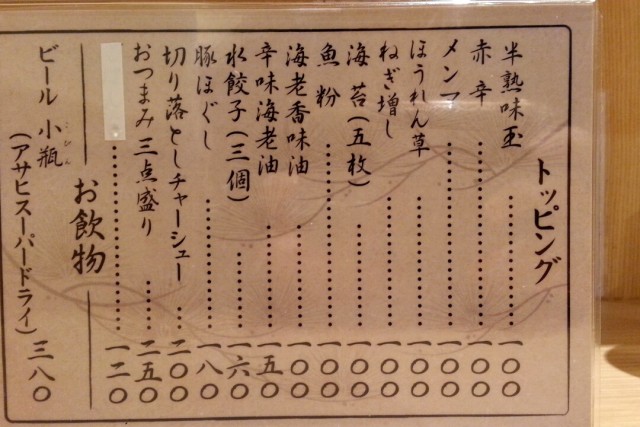 トッピング
半熟味玉 一〇〇
赤辛 一〇〇
メンマ 一〇〇
ほうれん草 一〇〇
ねぎ増し 一〇〇
海苔(五枚) 一〇〇
魚粉 一〇〇
海老香味油 一〇〇
辛味海老油 一五〇
水餃子(三個) 一六〇
豚ほぐし 一八〇
切り落としチャーシュー 二〇〇
おつまみ三点盛り 二五〇
一二〇
お飲物
ビール 小瓶 三八〇
こびん
(アサヒスーパードライ)